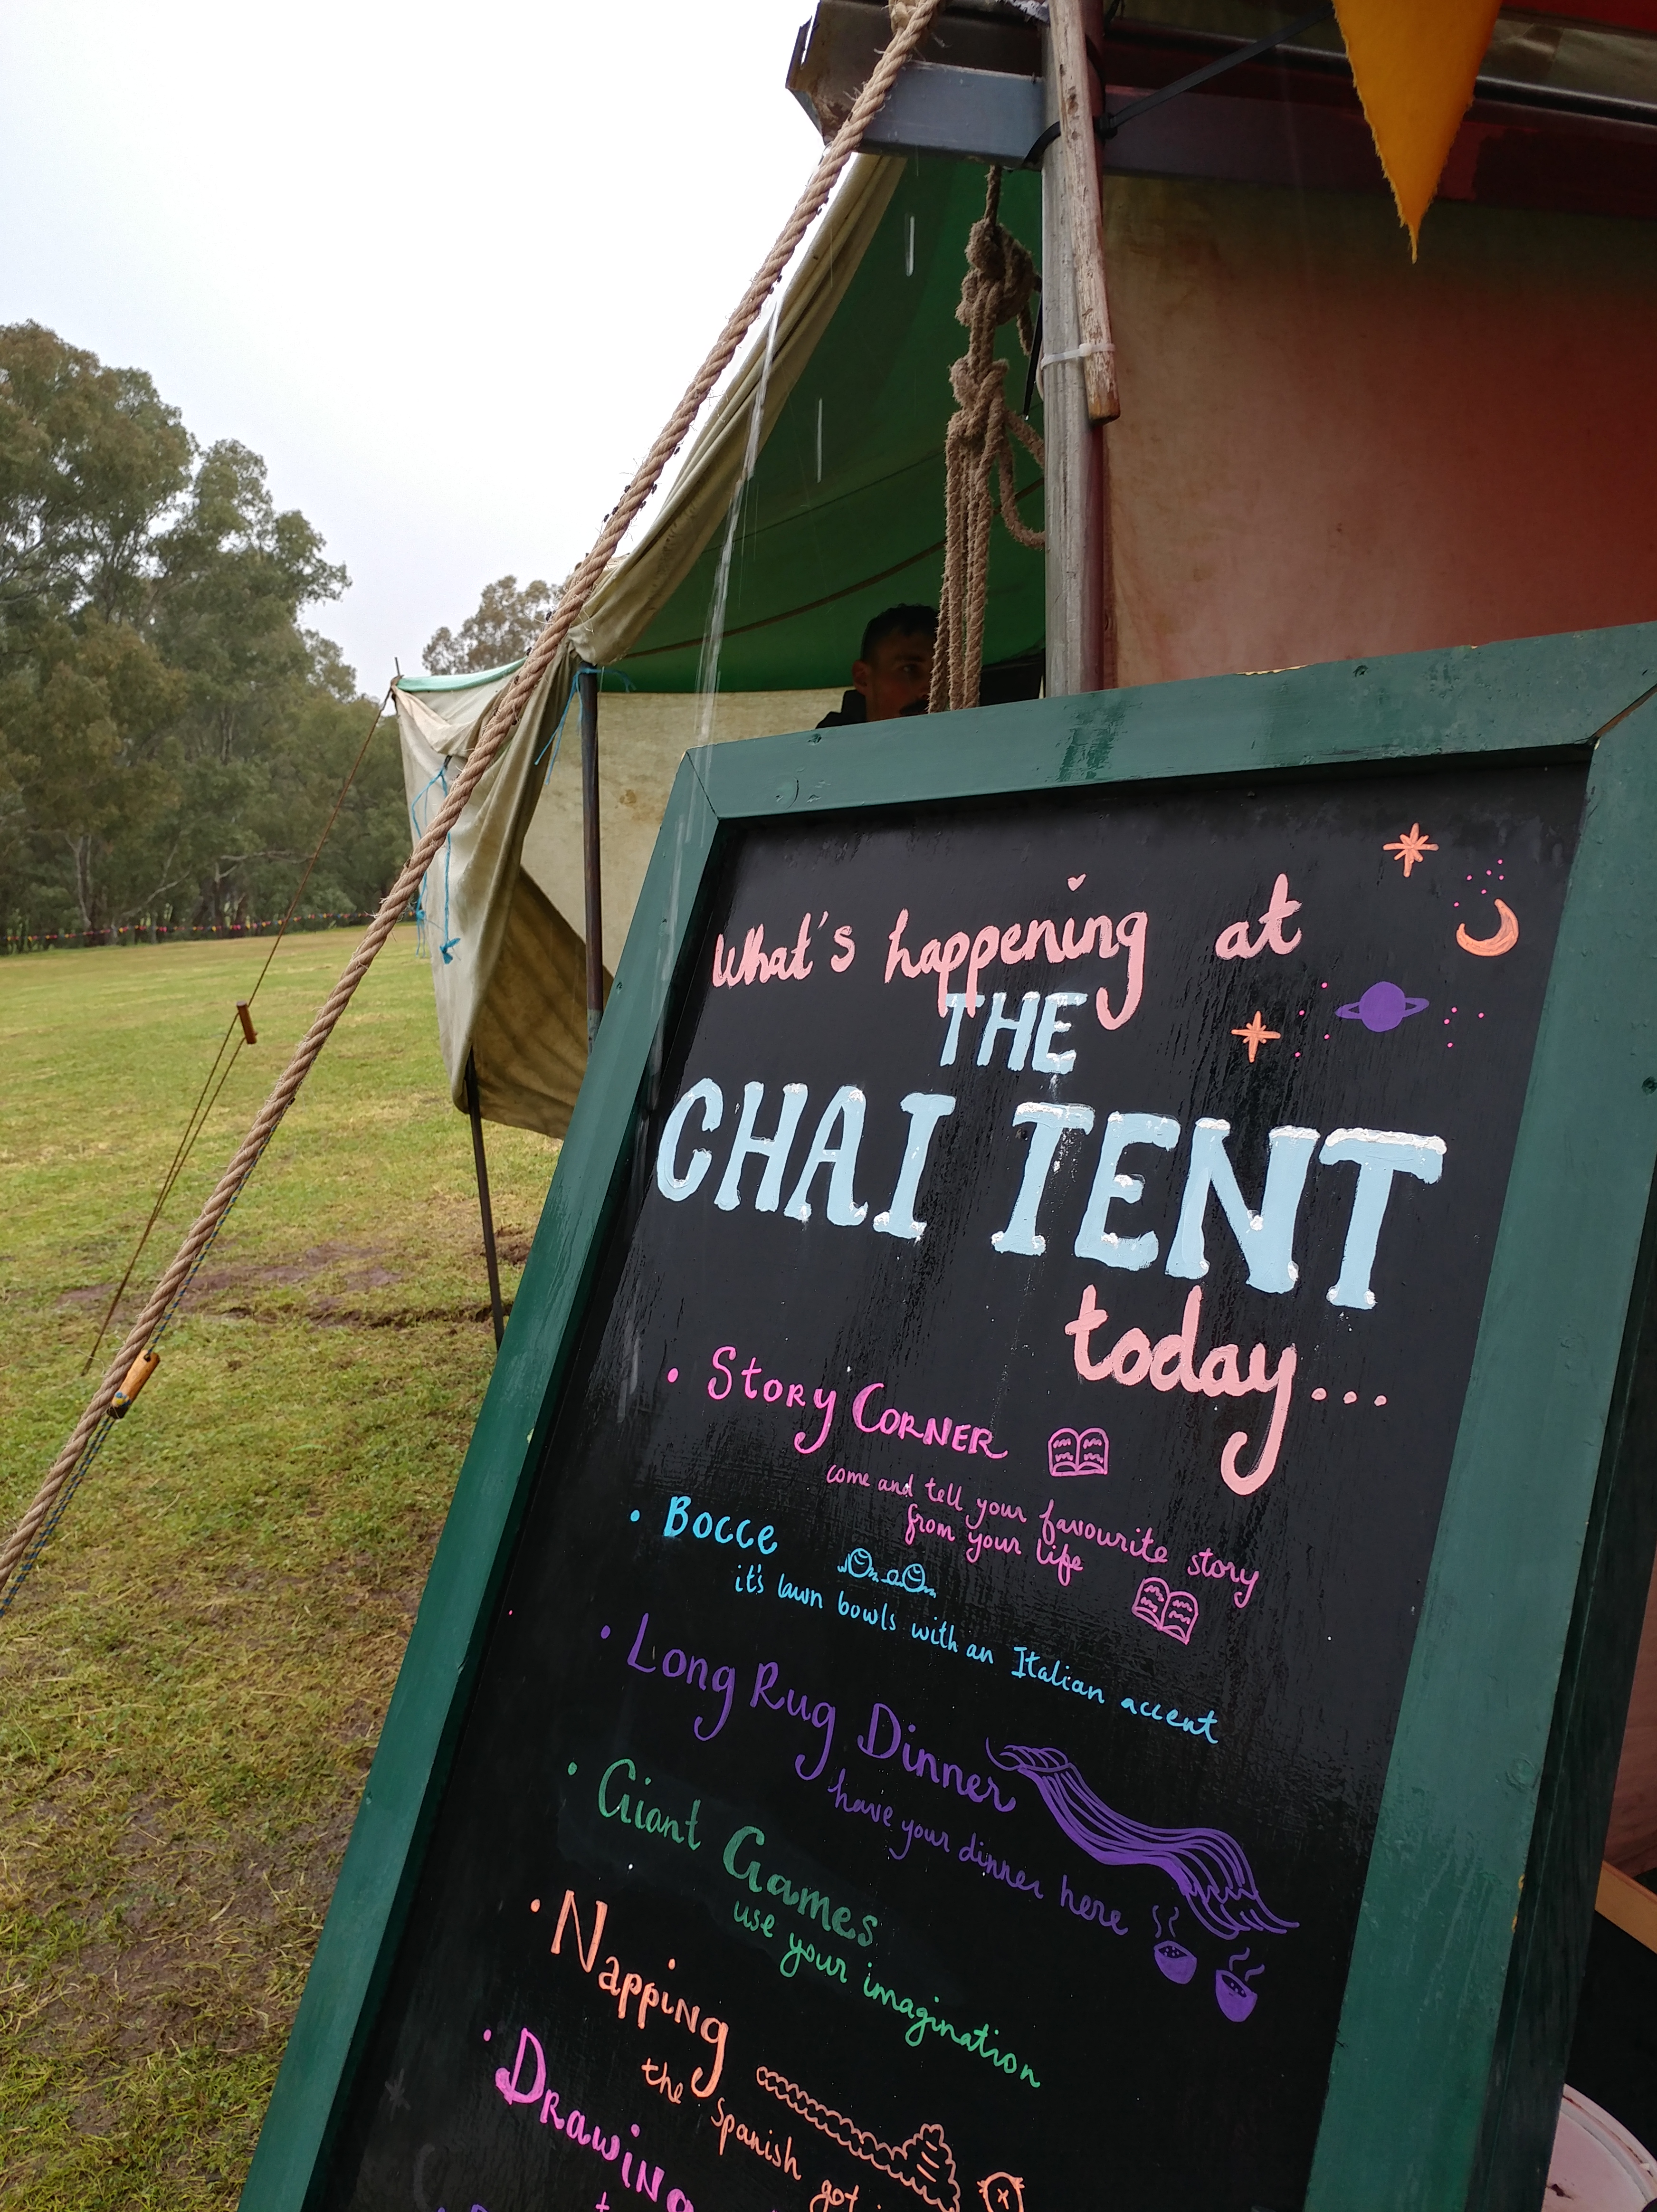 What's happening at
THE
CHAI TENT
today...
• STORY CORNER
come and tell your favourite story
from your life
• BOCCE
it's lawn bowls with an Italian accent
• Long Rug Dinner
have your dinner here
• Giant Games
use your imagination
• NAPPING
the Spanish got
• DRAWING